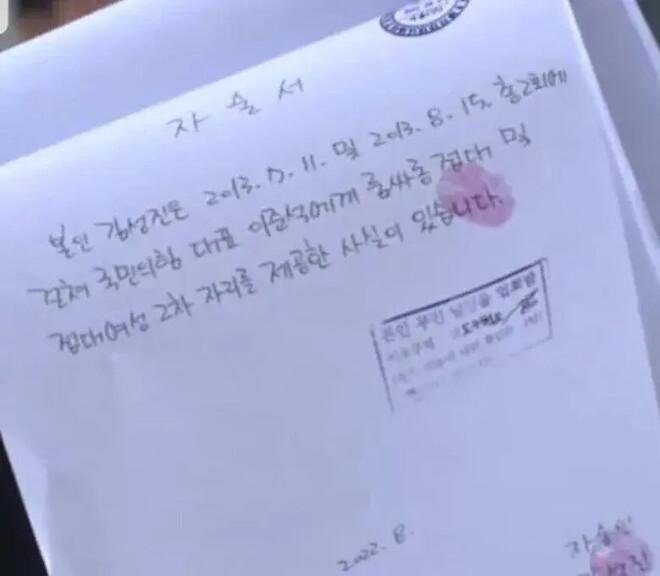 자 술 서
본인 김성진은 2013. 7. 11. 및 2013. 8. 15. 총2회에
걸쳐 국민의힘 대표 이준석에게 룸싸롱 접대 및
접대여성 2차 자리를 제공한 사실이 있습니다.
본인 무인
2022. 8.
자술인
김성진